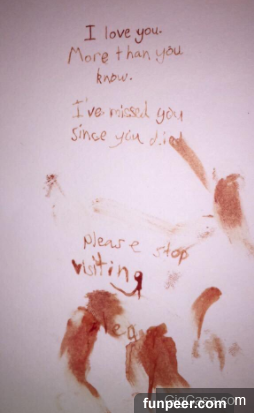 I love you.
More than you
know.
I've missed you
since you died
please stop
visiting
CigCasa.com
funpeer.com